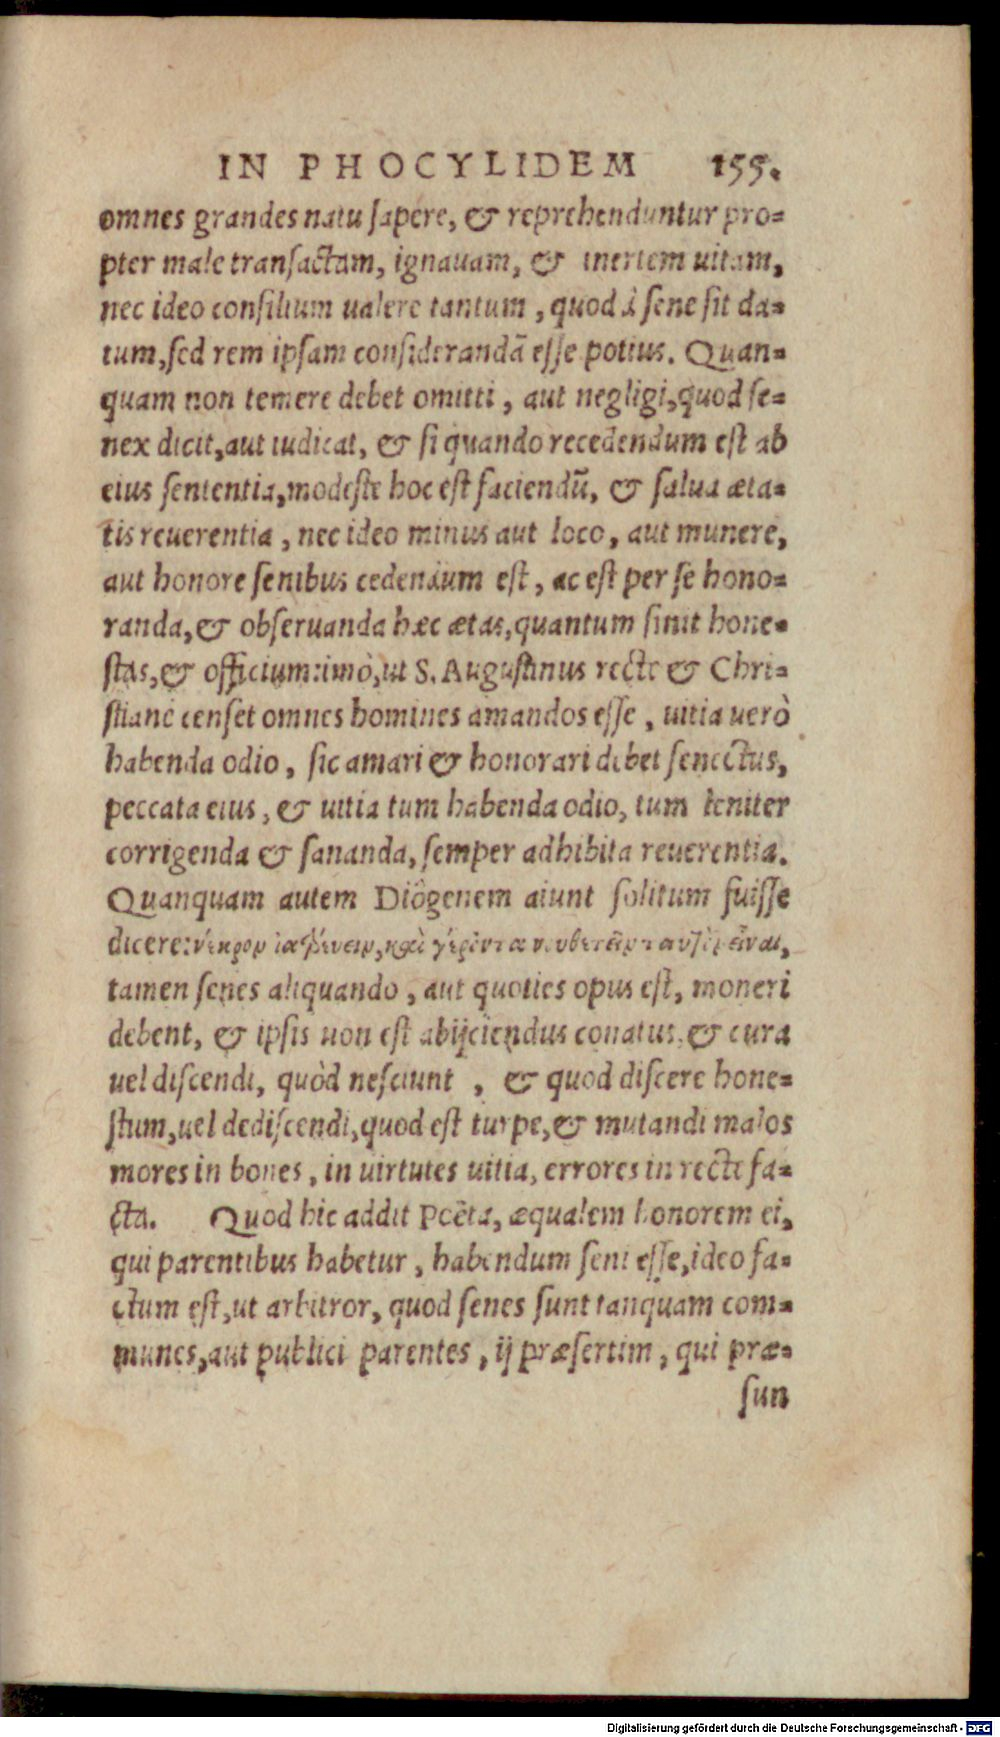 IN PHOCYLIDEM 155.
omnes grandes natu sapere, & reprehenduntur pro-
pter male transactam, ignauam, & inertem uitam,
nec ideo consilium ualere tantum, quod à sene sit da-
tum, sed rem ipsam considerandā esse potius. Quan-
quam non temere debet omitti, aut negligi, quod se-
nex dicit, aut iudicat, & si quando recedendum est ab
eius sententia, modeste hoc est faciendū, & salua æta-
tis reuerentia, nec ideo minus aut loco, aut munere,
aut honore senibus cedendum est, ac est per se hono-
randa, & obseruanda hæc ætas, quantum sinit hone-
stas, & officium: imò, ut S. Augustinus recte & Chri-
stiane censet omnes homines amandos esse, uitia uerò
habenda odio, sic amari & honorari debet senectus,
peccata eius, & uitia tum habenda odio, tum leniter
corrigenda & sananda, semper adhibita reuerentia.
Quanquam autem Diôgenem aiunt solitum fuisse
dicere: νεκρον ἰατρεύειν, καὶ γέροντα νουθετεῖν ταυτὸν εἶναι,
tamen senes aliquando, aut quoties opus est, moneri
debent, & ipsis non est abijciendus conatus, & cura
uel discendi, quòd nesciunt, & quod discere hone-
stum, uel dediscendi, quod est turpe, & mutandi malos
mores in bonos, in uirtutes uitia, errores in recte fa-
cta. Quod hic addit Poëta, æqualem honorem ei,
qui parentibus habetur, habendum seni esse, ideo fa-
ctum est, ut arbitror, quod senes sunt tanquam com-
munes, aut publici parentes, ij præsertim, qui præ-
sun
Digitalisierung gefördert durch die Deutsche Forschungsgemeinschaft - DFG